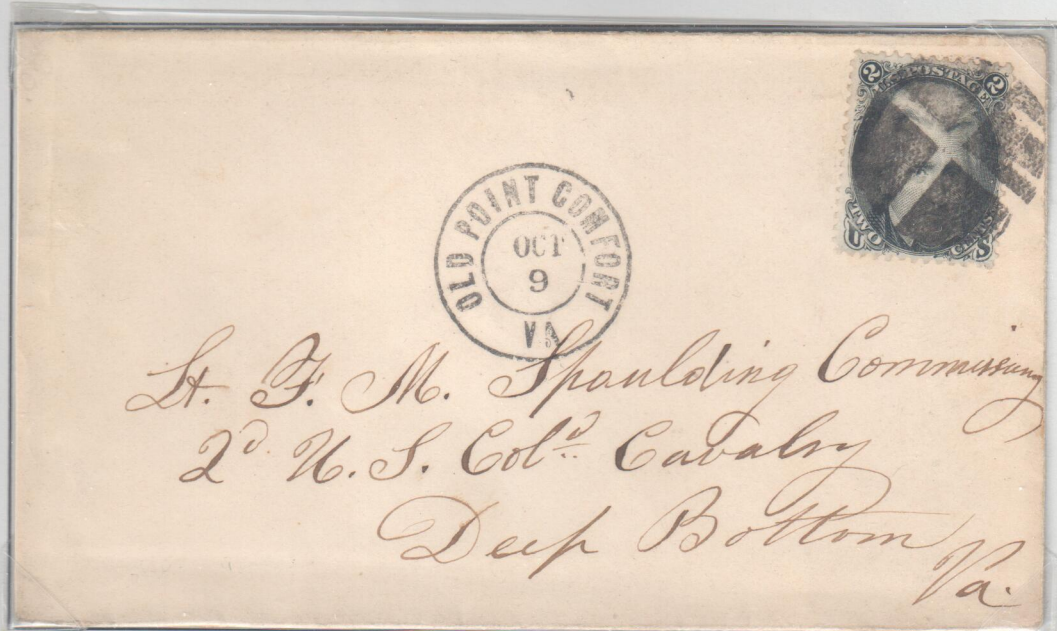 2 U.S. POSTAGE 2
TWO CENTS
U S
OLD POINT COMFORT
OCT
9
VA
Lt. F. M. Spaulding Commissary
2d. U. S. Col'd Cavalry
Deep Bottom
Va.